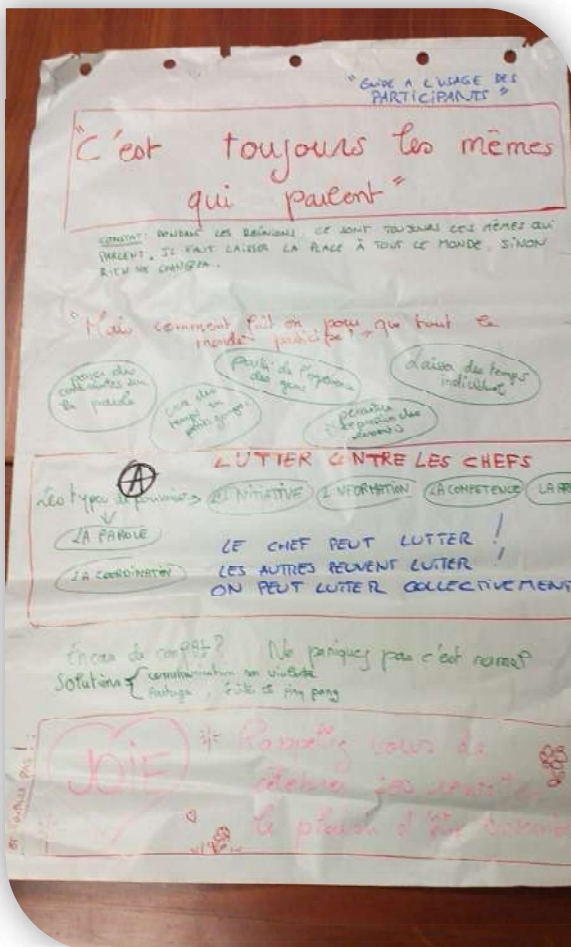 "GUIDE A L'USAGE DES
PARTICIPANTS"
"C'est toujours les mêmes
qui parlent"
CONSTAT: PENDANT LES RÉUNIONS, CE SONT TOUJOURS LES MÊMES QUI
PARLENT. IL FAUT LAISSER LA PLACE À TOUT LE MONDE, SINON
RIEN NE CHANGERA.
"Mais comment fait on pour que tout le
monde participe?"
poser des
contraintes sur
la parole
temps en
petits groupes
partir de l'expérience
des gens
permettre
l'expression des
Laisser des temps
individuels
LUTTER CONTRE LES CHEFS
A
Les types de pouvoirs
L'INITIATIVE
L'INFORMATION
LA COMPETENCE
LA
LA PAROLE
LA COORDINATION
LE CHEF PEUT LUTTER !
LES AUTRES PEUVENT LUTTER !
ON PEUT LUTTER COLLECTIVEMENT
En cas de conflit? Ne paniquez pas c'est normal
Solutions
communication non violente
éviter le ping pong
JOIE
Rappelez vous de
célébrer les
le plaisir d'être